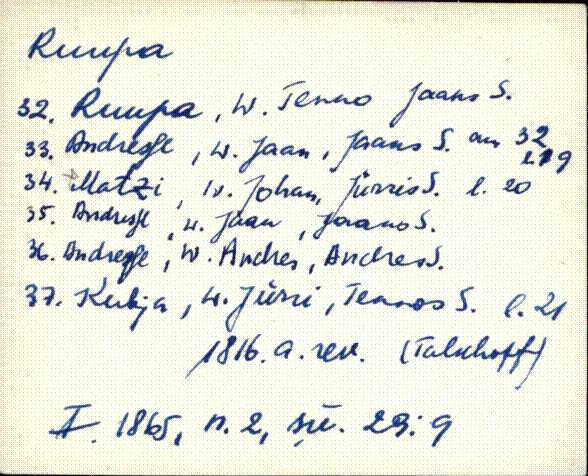 Ruupa
32. Ruupa, W. Tenno Jaans S.
33. Andresse, W. Jaan, Jaans S. am 32
l. 19
34. Matzi, W. Johan, Jürris S. l. 20
35. Andresse, W. Jaan, Jaans S.
36. Andresse, W. Andres, Andres S.
37. Kubja, W. Jürri, Tennos S. l. 21
1816. a. rev. (Talkhoff)
II. 1865, n. 2, sü. 23:9